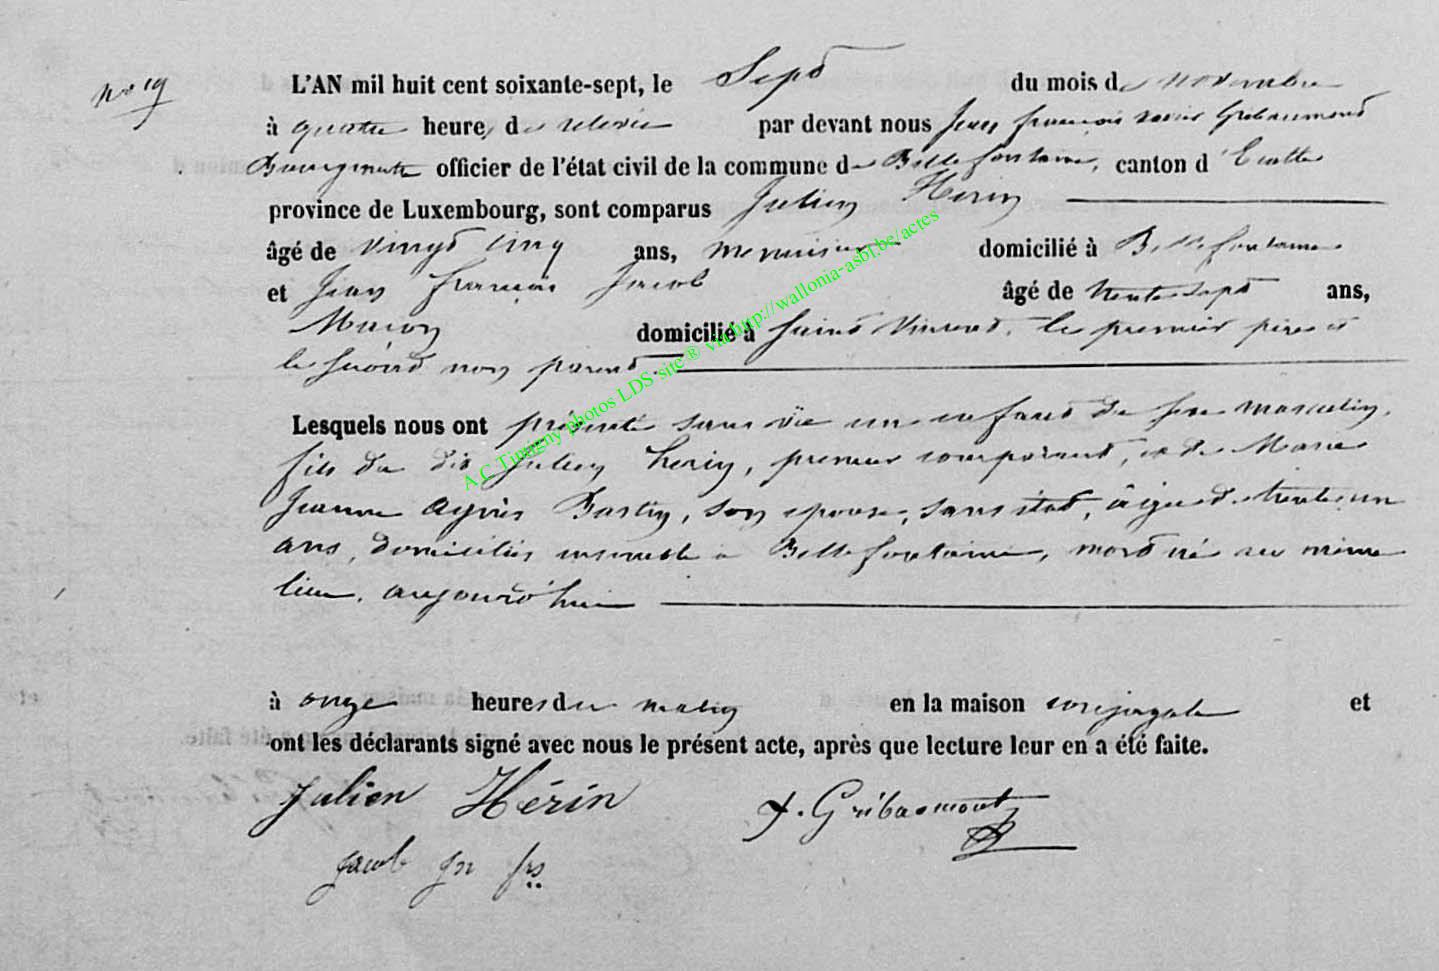 No 19
L'AN mil huit cent soixante-sept, le Sept du mois de novembre
à quatre heures de relevée par devant nous Jean françois xavier Gribaumont
Bourgmestre officier de l'état civil de la commune de Bellefontaine, canton d'Etalle
province de Luxembourg, sont comparus Julien Herin
âgé de vingt cinq ans, menuisier domicilié à Bellefontaine
et Jean françois Jacob âgé de trente sept ans,
Maçon domicilié à Saint Vincent, le premier père et
le second non parent.
Lesquels nous ont présenté sans vie un enfant de sexe masculin,
fils du dit Julien herin, premier comparant, et de Marie
Jeanne Agnès Bastin, son epouse, sans état, âgée de trente un
ans, domiciliés ensemble à Bellefontaine, mort né au même
lieu, aujourd'hui
à onze heures du matin en la maison conjugale et
ont les déclarants signé avec nous le présent acte, après que lecture leur en a été faite.
Julien Hérin
F. Gribaumont
Jacob Jn frs
A.C Tintigny photos LDS site ® via http://wallonia-asbl.be/actes